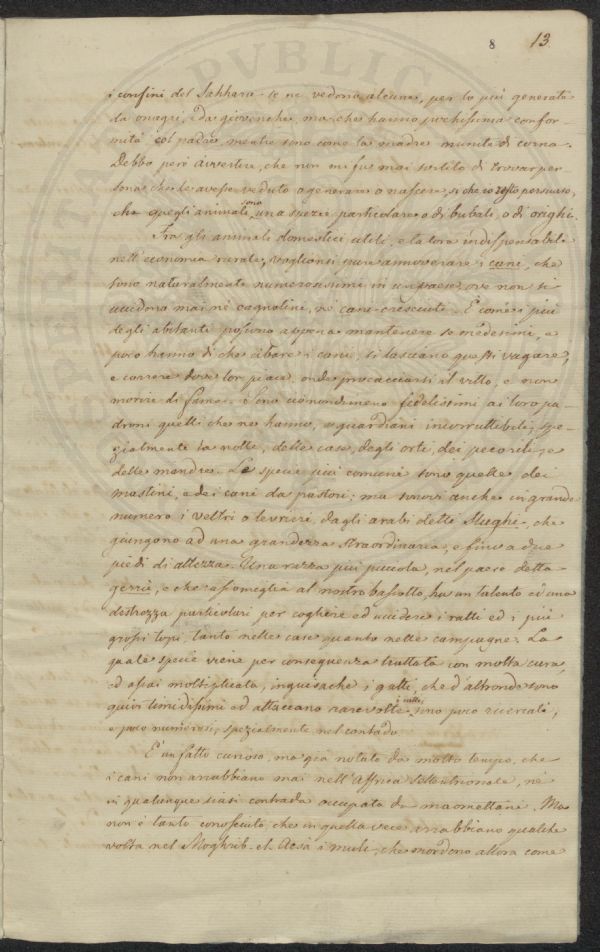 8 13
i confini del Sahhara se ne vedono alcune, per lo più generate
da onagri, e da giovenche, ma che hanno pochissima confor-
mità col padre, mentre sono come la madre munite di corna.
Debbo però avvertire, che non mi fu mai sortito di trovar per-
sona che le avesse veduto o generare o nascere, si che io resto persuaso,
che quegli animali sono una spezie particolare o di bubali, o di orighi.
Fra gli animali domestici utili, e la loro indispensabile
nell'economia rurale, voglionsi pure annoverare i cani, che
sono naturalmente numerosissimi in un paese, ove non si
uccidono mai nè cagnolini, nè cani cresciuti. E come i più
degli abitanti possono appena mantenere se medesimi, e
poco hanno di che cibare i cani, si lasciano questi vagare,
e correre dove lor piace, onde procacciarsi il vitto, e non
morire di fame. Sono ciònondimeno fedelissimi ai loro pa-
droni quelli che ne hanno, e guardiani incorruttibili, spe-
zialmente la notte, delle case, degli orti, dei pecorili, e
delle mandre. Le specie più comuni sono quelle dei
mastini, e dei cani da pastori; ma sonovi anche in grande
numero i veltri o levrieri, dagli arabi detti Slughi, che
giungono ad una grandezza straordinaria, e fino a due
piedi di altezza. Una razza più piccola, nel paese detta
gerrù, e che assomiglia al nostro bassotto, ha un talento ed una
destrezza particolari per cogliere ed uccidere i ratti ed i più
grossi topi tanto nelle case quanto nelle campagne. La
quale specie viene per conseguenza trattata con molta cura,
ed assai moltiplicata, in guisa che i gatti, che d'altronde sono
quivi timidissimi ed attaccano rare volte i ratti, sono poco ricercati,
e poco numerosi, spezialmente nel contado.
E' un fatto curioso, ma già notato da molto tempo, che
i cani non arrabbiano mai nell'Affrica settentrionale, nè
in qualunque siasi contrada occupata da maomettani. Ma
non è tanto conosciuto, che in quella vece arrabbiano qualche
volta nel Moghrib-el-Acsà i muli, che mordono allora come